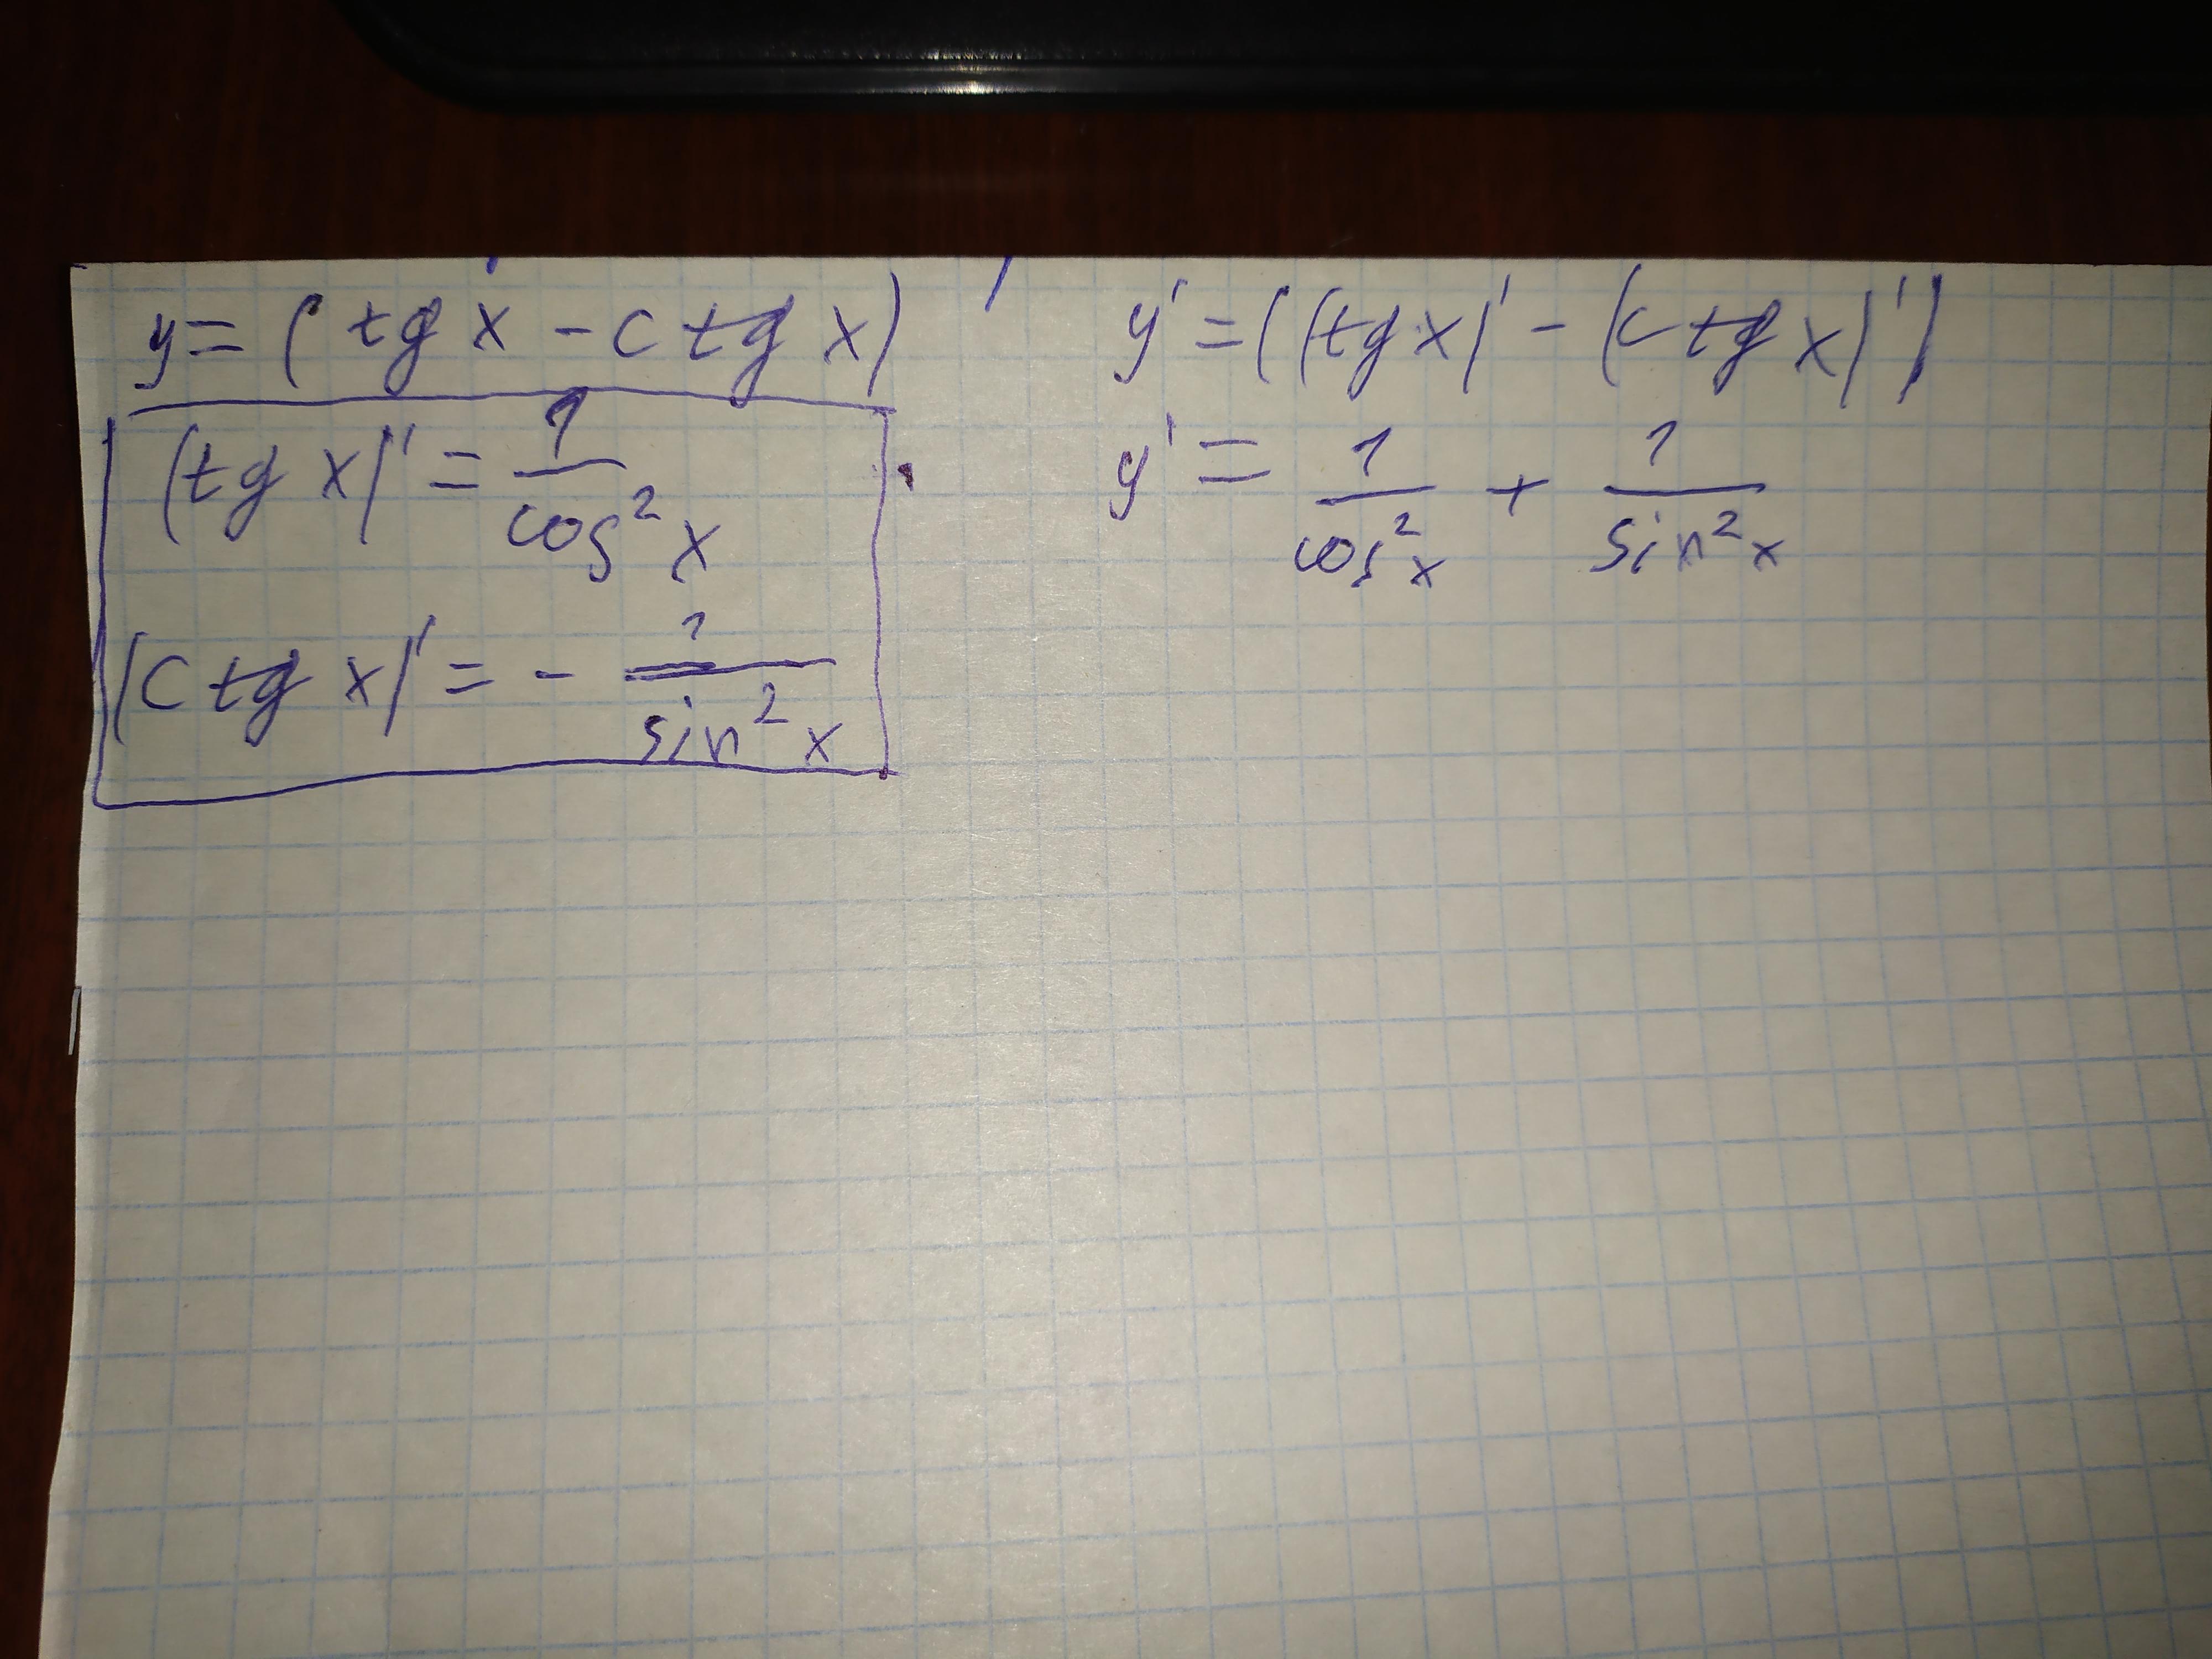 y = (tg x - ctg x)
(tg x)' = 1/cos² x
(ctg x)' = - 1/sin² x
y' = ((tg x)' - (ctg x)')
y' = 1/cos² x + 1/sin² x